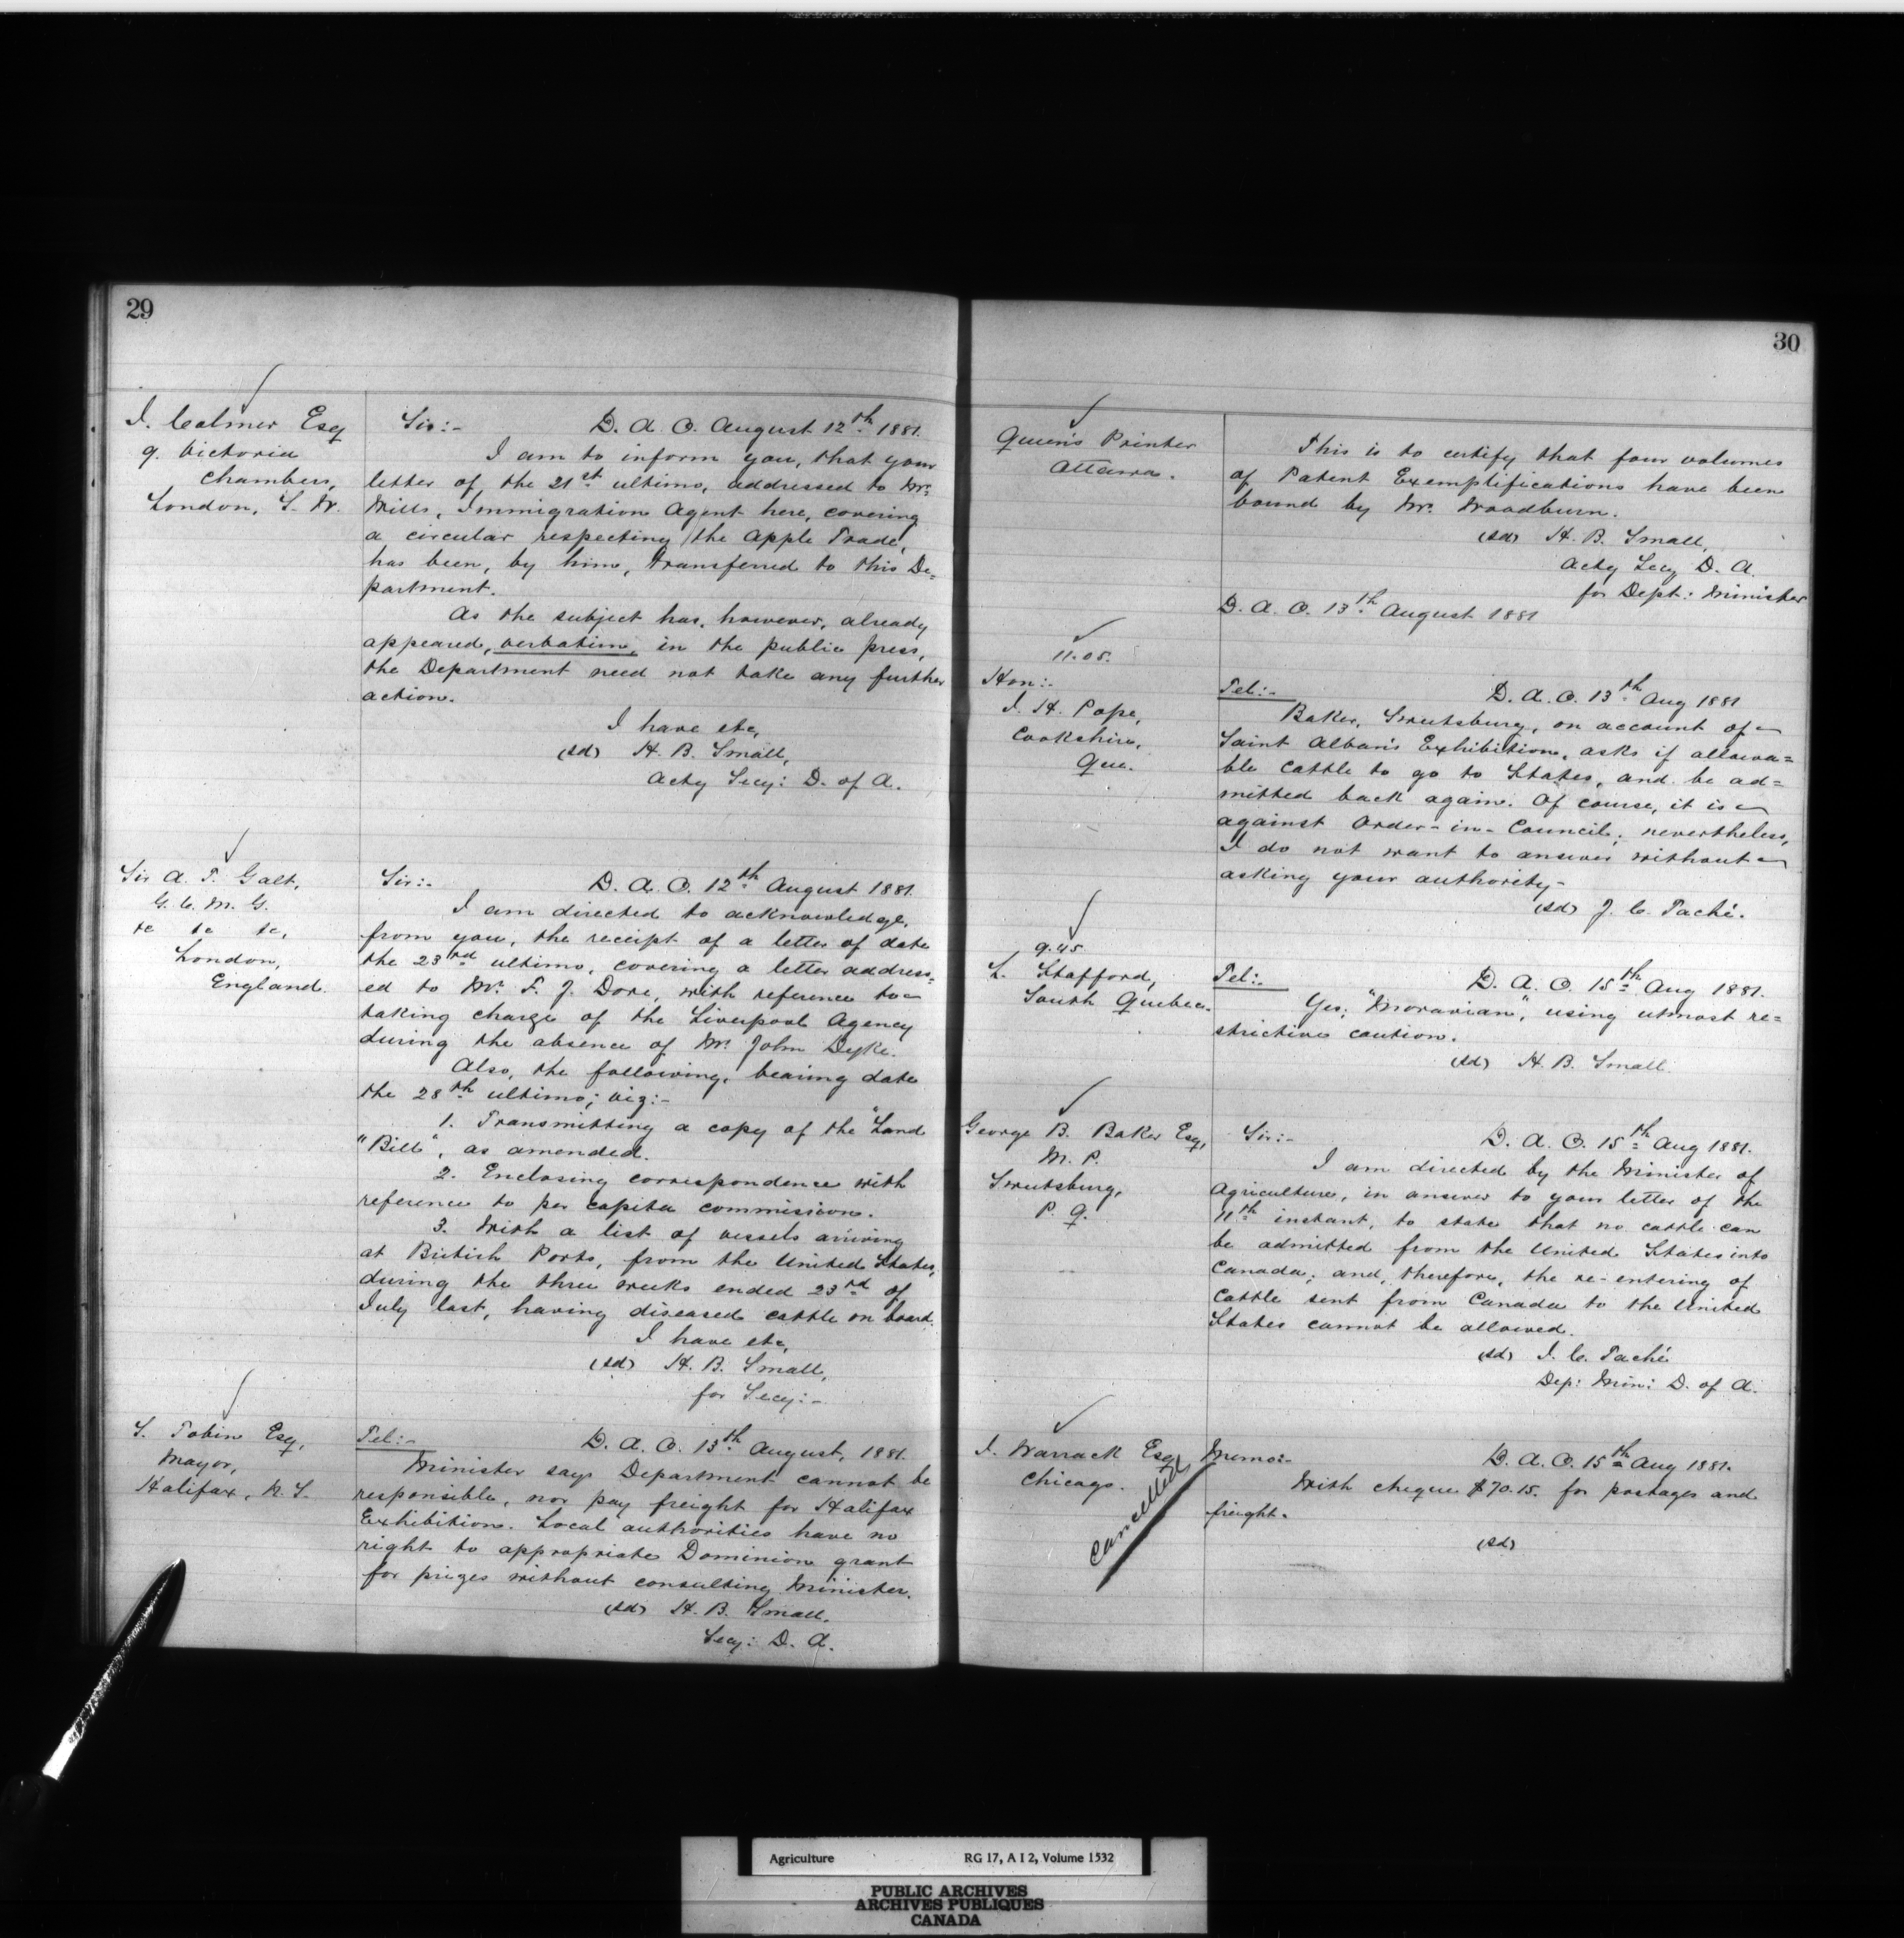 29
J. Colmer Esq
9. Victoria
Chambers,
London, S. W.
Sir:- D. A. O. August 12th 1881.
I am to inform you, that your
letter of the 21st ultimo, addressed to Mr.
Wills, Immigration Agent here, covering
a circular respecting the Apple Trade,
has been, by him, transferred to this De=
partment.
As the subject has, however, already
appeared, verbatim, in the public press,
the Department need not take any further
action.
I have etc,
(sd) H. B. Small,
Actg Secy: D. of A.
Sir A. T. Galt,
G. C. M. G.
&c &c &c,
London,
England.
Sir:- D. A. O. 12th August 1881.
I am directed to acknowledge,
from you, the receipt of a letter of date
the 23rd ultimo, covering a letter address=
ed to Mr. F. J. Dore, with reference to
taking charge of the Liverpool Agency
during the absence of Mr. John Dyke.
Also, the following, bearing date
the 28th ultimo; viz:-
1. Transmitting a copy of the "Land
"Bill", as amended.
2. Enclosing correspondence with
reference to per capita commission.
3. With a list of vessels arriving
at British Ports, from the United States,
during the three weeks ended 23rd of
July last, having diseased cattle on board.
I have etc,
(sd) H. B. Small,
for Secy:-
S. Tobin Esq,
Mayor,
Halifax, N. S.
Tel:- D. A. O. 13th August, 1881.
Minister says Department cannot be
responsible, nor pay freight for Halifax
Exhibition. Local authorities have no
right to appropriate Dominion grant
for prizes without consulting Minister.
(sd) H. B. Small.
Secy: D. A.
30
Queen's Printer
Ottawa.
This is to certify that four volumes
of Patent Exemplifications have been
bound by Mr. Woodburn.
(sd) H. B. Small,
Actg Secy D. A.
for Dept: Minister
D. A. O. 13th August 1881
11.05.
Hon:-
J. H. Pope,
Cookshire,
Que.
Tel:- D. A. O. 13th Aug 1881
Baker, Sweetsburg, on account of
Saint Alban's Exhibition, asks if allowa=
ble cattle to go to States, and be ad=
mitted back again. Of course, it is
against Order-in-Council; nevertheless,
I do not want to answer without
asking your authority-
(sd) J. C. Taché.
9.45
L. Stafford,
South Quebec.
Tel:- D. A. O. 15th Aug 1881.
Yes; "Moravian", using utmost re=
strictive caution.
(sd) H. B. Small.
George B. Baker Esq,
M. P.
Sweetsburg,
P. Q.
Sir:- D. A. O. 15th Aug 1881.
I am directed by the Minister of
Agriculture, in answer to your letter of the
11th instant, to state that no cattle can
be admitted from the United States into
Canada; and, therefore, the re-entering of
Cattle sent from Canada to the United
States cannot be allowed.
(sd) J. C. Taché
Dep: Min: D. of A.
J. Warrack Esq
Chicago.
Cancelled
Memo:- D. A. O. 15th Aug 1881.
With cheque $70.15. for postages and
freight.
(sd)
Agriculture RG 17, A I 2, Volume 1532
PUBLIC ARCHIVES
ARCHIVES PUBLIQUES
CANADA